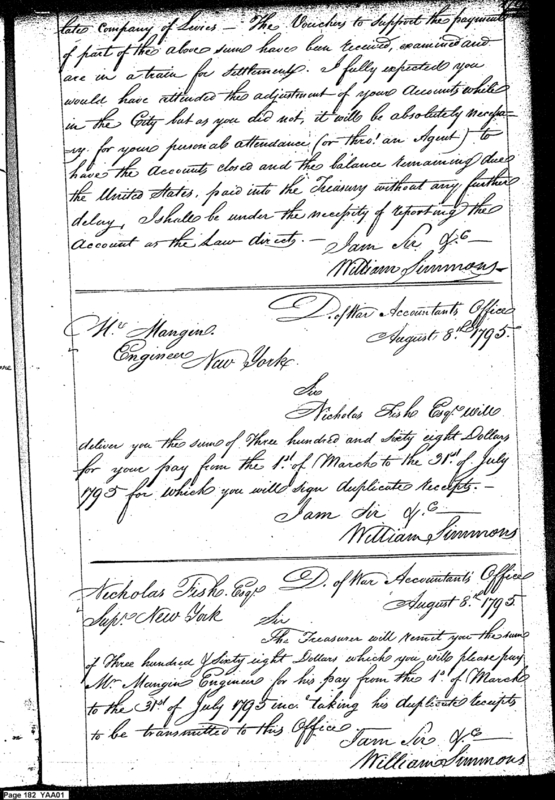 late Company of Levies — The Vouchers to support the payment
of part of the above sum have been received, examined and
are in a train for settlement. I fully expected you
would have attended the adjustment of your Accounts while
in the City but as you did not, it will be absolutely necessa-
ry for your personal attendance (or thro' an Agent) to
have the accounts closed and the balance remaining due
the United States, paid into the Treasury without any further
delay, I shall be under the necessity of reporting the
Account as the Law directs. —
I am Sir &c —
William Simmons
D. of War Accountants Office
August 8th 1795.
Mr Mangin.
Engineer New York.
Sir
Nicholas Fish Esqr. will
deliver you the sum of Three hundred and sixty eight Dollars
for your pay from the 1st. of March to the 31st. of July
1795 for which you will sign duplicate receipts. —
I am Sir &c —
William Simmons
Nicholas Fish Esqr.
Supr. New York
D. of War Accountants Office
August 8th 1795.
Sir
The Treasurer will remit you the sum
of Three hundred & Sixty eight Dollars which you will please pay
Mr Mangin Engineer for his pay from the 1st of March
to the 31st of July 1795 inc. taking his duplicate receipts
to be transmitted to this Office
I am Sir &c
William Simmons
Page 182 YAA01